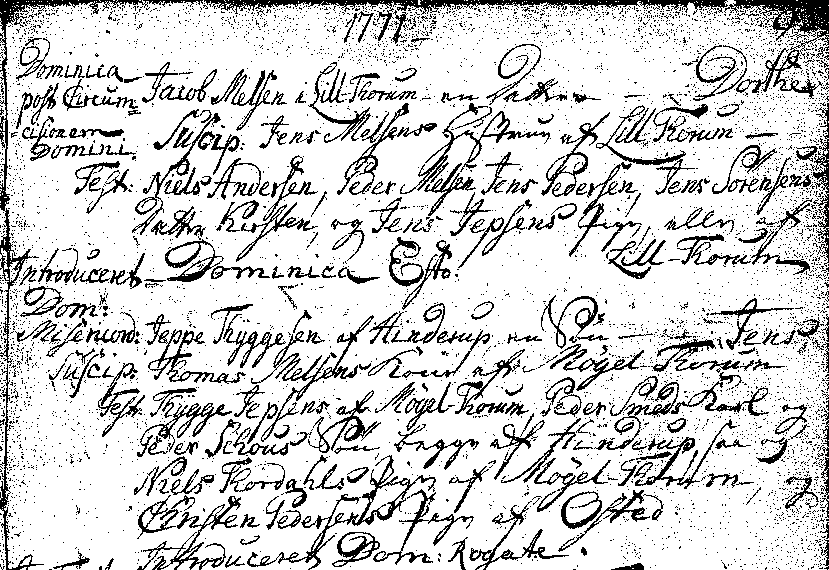 1771
Dominica
post Circum= Jacob Melsen i Lill Thorum - en Datter - - Dorthe
-cisionem
Domini. Suscip: Jens Melsens Hustrue af Lill Thorum -
Test: Niels Andersen, Peder Melsen, Jens Pedersen, Jens Sörensens
Datter Kirsten, og Jens Jepsens Pige, alle af
Lill Thorum
Introduceret Dominica Esto.
Dom:
Misericord: Jeppe Thyggesen af Hinderup en Sön - Jens,
Suscip: Thomas Melsens Kone af Mögel Thorum
Test: Thygge Jepsens af Mögel Thorum, Peder Smeds Karl og
Peder Schous Sön begge af Hinderup, saa og
Niels Thordahls Pige af Mögel Thorum, og
Christen Pedersens Pige af Osted
Introduceret Dom: Rogate.